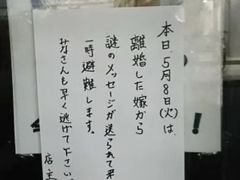 本日、5月8日(火)は、
離婚した嫁から
謎のメッセージが送られて来
一時避難します。
みなさんも早く逃げて下さい
店